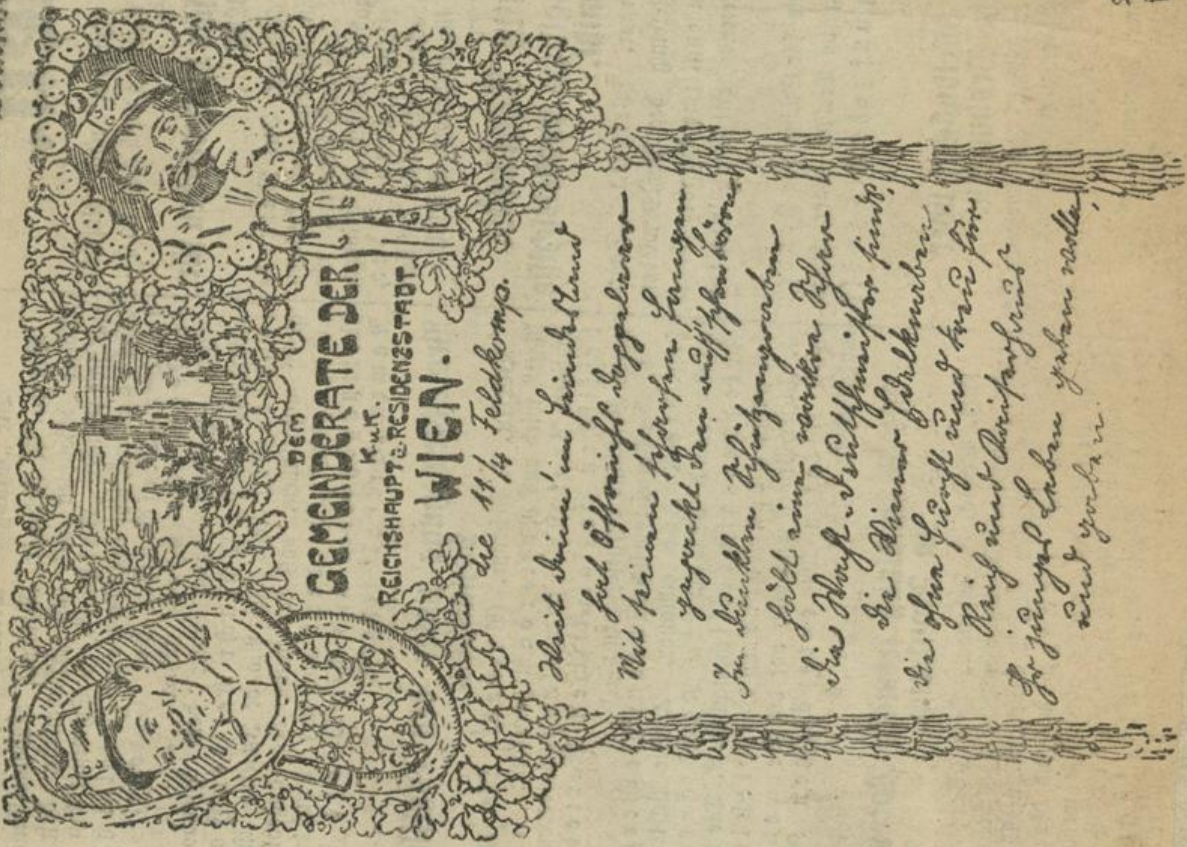 DEM
GEMEINDERATE DER
K.u.K.
REICHSHAUPT- u. RESIDENZSTADT
WIEN.
die 11/4 Feldkomp.
Weit drinn' im Feindesland
hat Östreichs Doppelaar
Mit seinen scharfen Fangen
gepackt den russ'schen Bären
Im dunklen Schützengraben
hält eine wackre Schar
die Wacht. Deutschmeister sind's,
die Wiener Edelknaben,
die ohne Furcht und treu für
Reich und Kaiserhaus
Ihr junges Leben geben
und gaben.